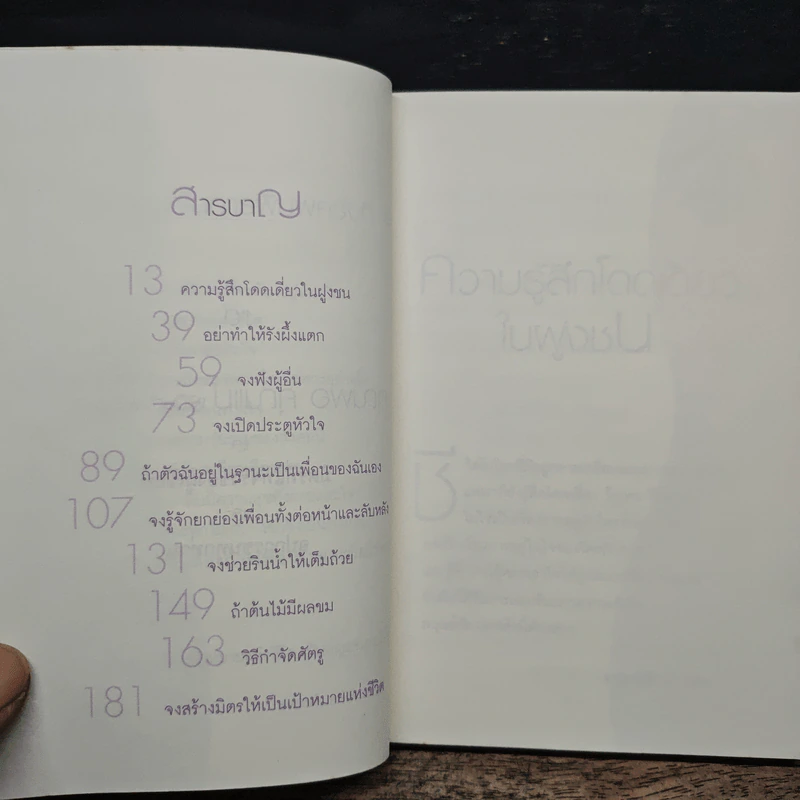 สารบาญ
13 ความรู้สึกโดดเดี่ยวในฝูงชน
39 อย่าทำให้รังผึ้งแตก
59 จงฟังผู้อื่น
73 จงเปิดประตูหัวใจ
89 ถ้าตัวฉันอยู่ในฐานะเป็นเพื่อนของฉันเอง
107 จงรู้จักยกย่องเพื่อนทั้งต่อหน้าและลับหลัง
131 จงช่วยรินน้ำให้เต็มถ้วย
149 ถ้าต้นไม้มีผลขม
163 วิธีกำจัดศัตรู
181 จงสร้างมิตรให้เป็นเป้าหมายแห่งชีวิต